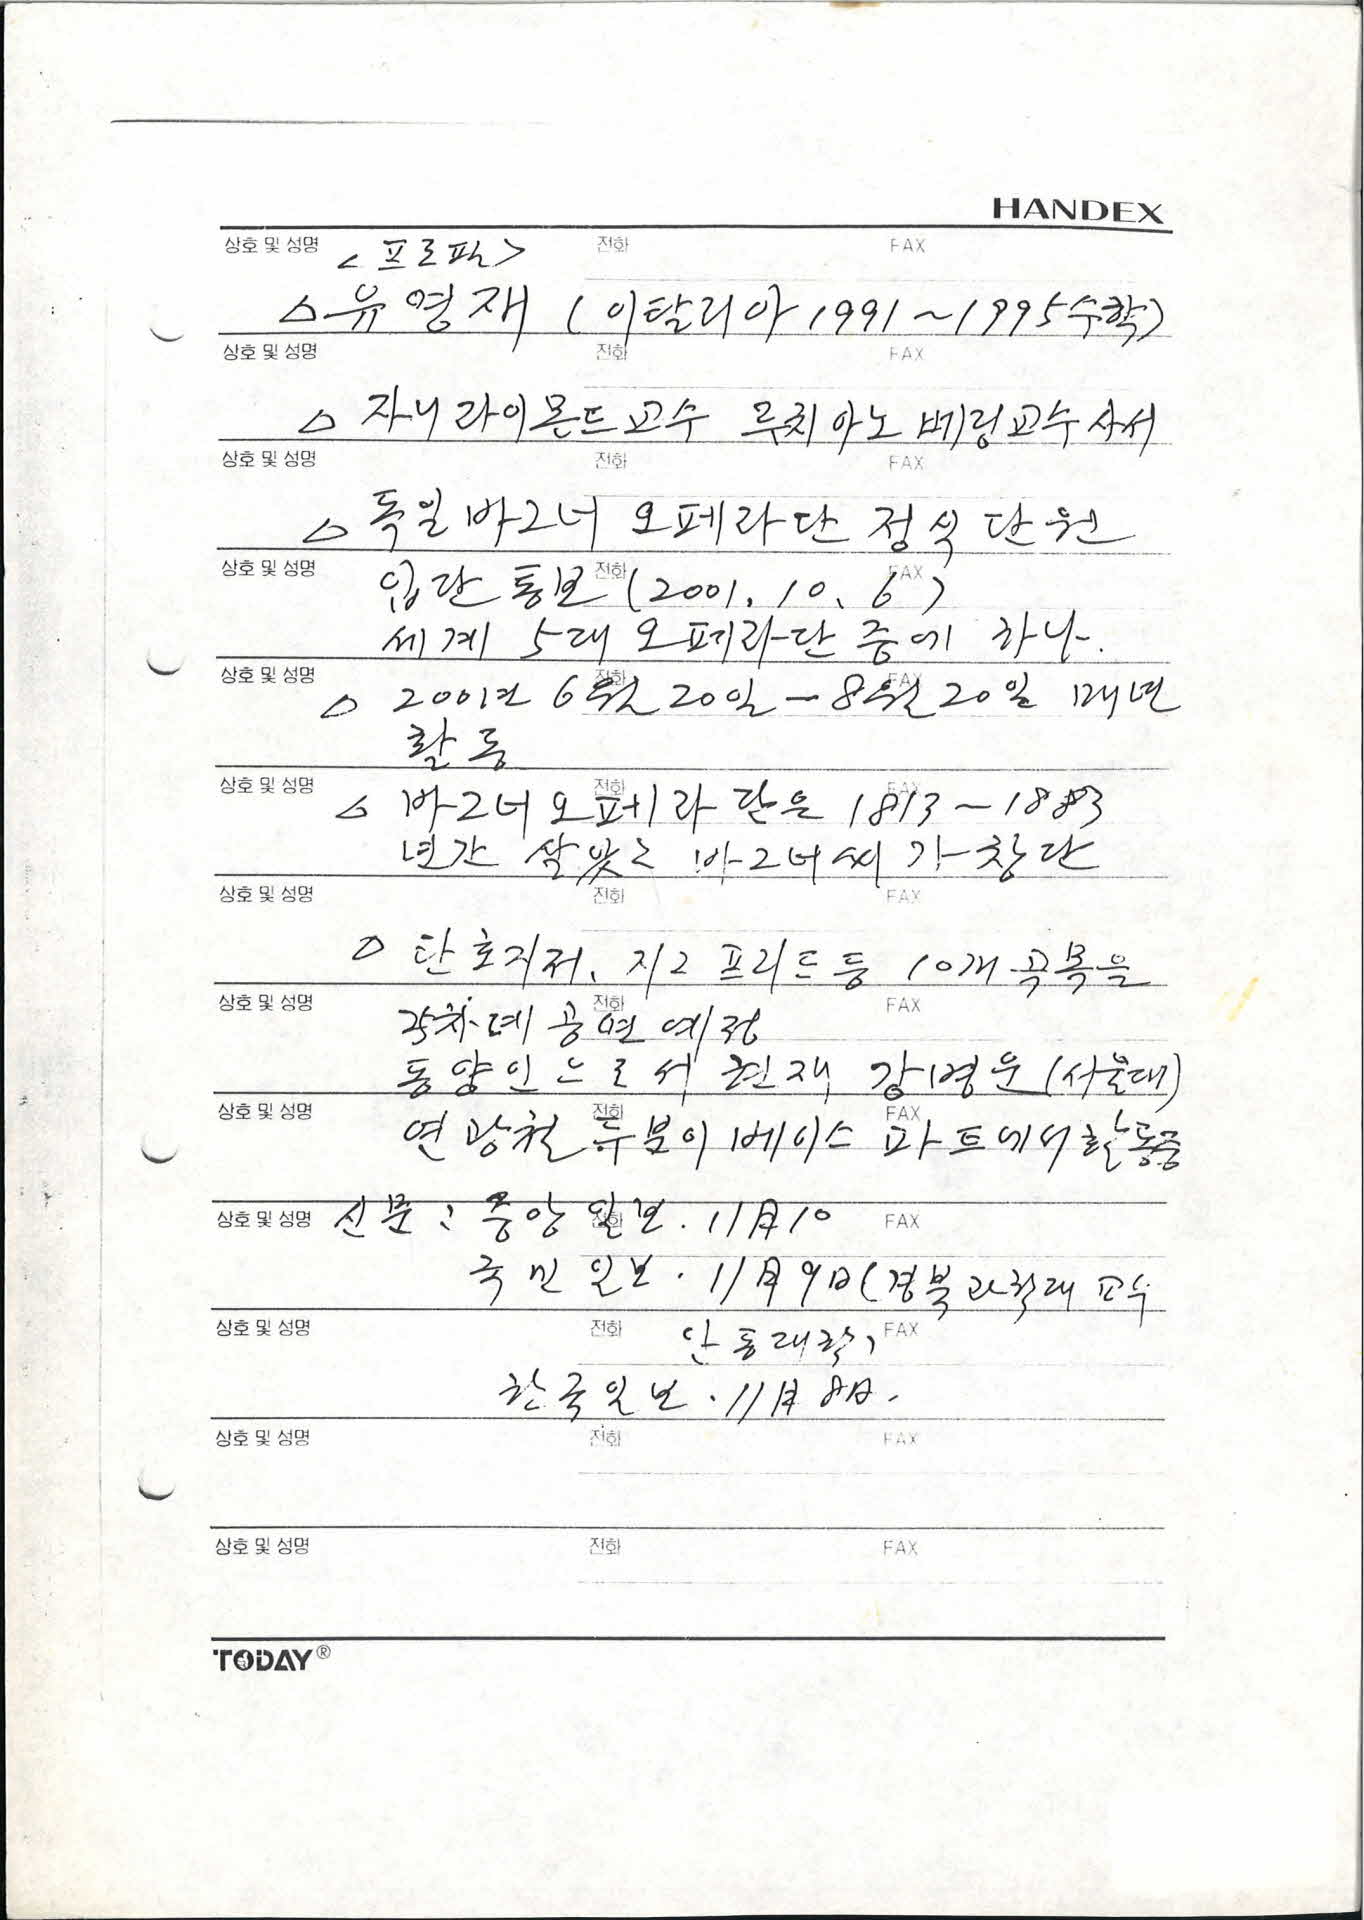 HANDEX
상호 및 성명 전화 FAX
<프로필>
△유영재 (이탈리아 1991~1995수학)
상호 및 성명 전화 FAX
△ 자니 라이몬드교수 루치아노 베링교수 사서
상호 및 성명 전화 FAX
△ 독일 바그너 오페라단 정식 단원
상호 및 성명 전화 FAX
입단 통보 (2001. 10. 6)
세계 5대 오페라단 중에 하나.
상호 및 성명 전화 FAX
△ 2001년 6월 20일 - 8월 20일 매년
활동
상호 및 성명 전화 FAX
△ 바그너 오페라 단은 1813~1883
년간 살았던 바그너씨가 창단
상호 및 성명 전화 FAX
△ 탄호지저, 지그프리드 등 10개 곡목을
상호 및 성명 전화 FAX
각차례 공연 예정
동양인으로서 현재 강병운 (서울대)
상호 및 성명 전화 FAX
연광철 두분이 베이스 파트에서 활동중
상호 및 성명 전화 FAX
신문: 중앙일보. 11月 10
국민일보. 11月 9日 (경북과학대 교수
상호 및 성명 전화 FAX
안동대학)
한국일보. 11月 8日.
상호 및 성명 전화 FAX
상호 및 성명 전화 FAX
TODAY®